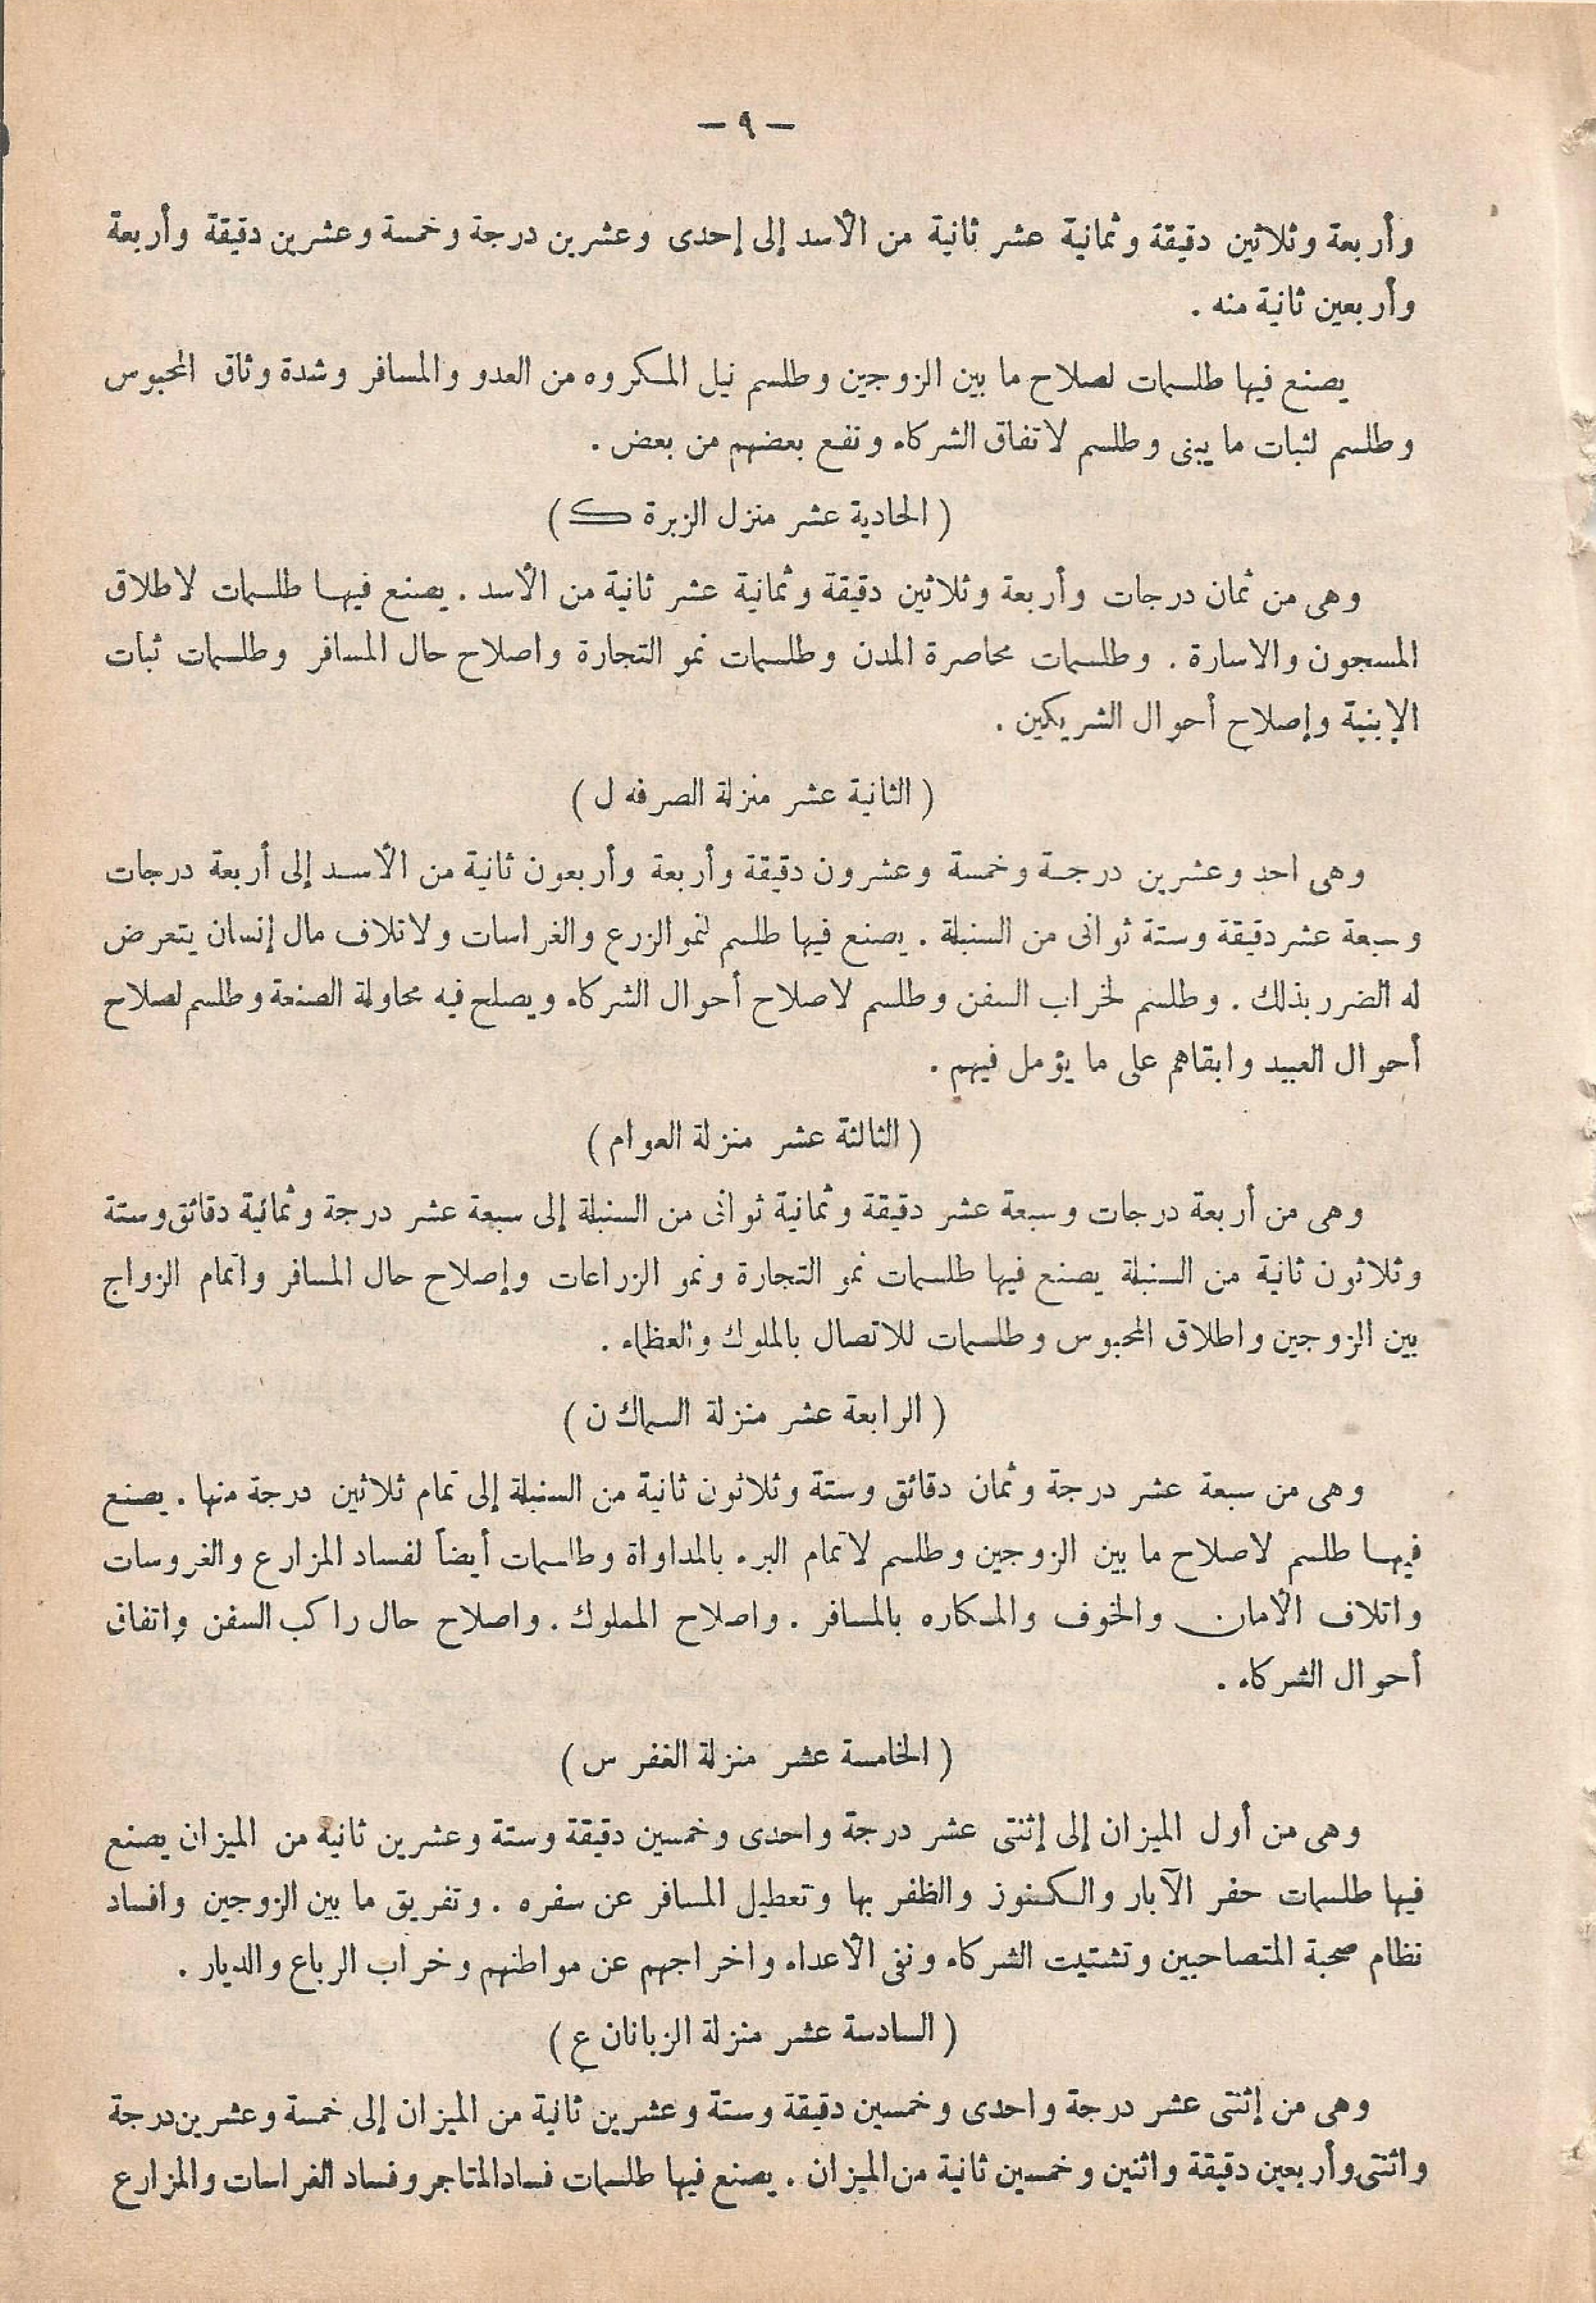 — ٩ —
وأربعة وثلاثين دقيقة وثمانية عشر ثانية من الأسد إلى إحدى وعشرين درجة وخمسة وعشرين دقيقة وأربعة
وأربعين ثانية منه .
يصنع فيها طلسمات لصلاح ما بين الزوجين وطلسم نيل المكروه من العدو والمسافر وشدة وثاق المحبوس
وطلسم لثبات ما يبنى وطلسم لاتفاق الشركاء ونفع بعضهم من بعض .
( الحادية عشر منزل الزبرة ك )
وهى من ثمان درجات وأربعة وثلاثين دقيقة وثمانية عشر ثانية من الأسد . يصنع فيها طلسمات لاطلاق
المسجون والاسارة . وطلسمات محاصرة المدن وطلسمات نمو التجارة واصلاح حال المسافر وطلسمات ثبات
الإبنية وإصلاح أحوال الشريكين .
( الثانية عشر منزلة الصرفه ل )
وهى احد وعشرين درجة وخمسة وعشرون دقيقة وأربعة وأربعون ثانية من الأسد إلى أربعة درجات
وسبعة عشر دقيقة وستة ثوانى من السنبلة . يصنع فيها طلسم لنمو الزرع والغراسات ولاتلاف مال إنسان يتعرض
له الضرر بذلك . وطلسم لخراب السفن وطلسم لاصلاح أحوال الشركاء ويصلح فيه محاولة الصنعة وطلسم لصلاح
أحوال العبيد وابقاهم على ما يؤمل فيهم .
( الثالثة عشر منزلة العوام )
وهى من أربعة درجات وسبعة عشر دقيقة وثمانية ثوانى من السنبلة إلى سبعة عشر درجة وثمانية دقائق وستة
وثلاثون ثانية من السنبلة يصنع فيها طلسمات نمو التجارة ونمو الزراعات وإصلاح حال المسافر واتمام الزواج
بين الزوجين واطلاق المحبوس وطلسمات للاتصال بالملوك والعظماء .
( الرابعة عشر منزلة السماك ن )
وهى من سبعة عشر درجة وثمان دقائق وستة وثلاثون ثانية من السنبلة إلى تمام ثلاثين درجة منها . يصنع
فيها طلسم لاصلاح ما بين الزوجين وطلسم لاتمام البرء بالمداواة وطلسمات أيضاً لفساد المزارع والغروسات
واتلاف الأمان والخوف والمكاره بالمسافر . واصلاح المملوك . واصلاح حال راكب السفن واتفاق
أحوال الشركاء .
( الخامسة عشر منزلة الغفر س )
وهى من أول الميزان إلى إثنتى عشر درجة واحدى وخمسين دقيقة وستة وعشرين ثانية من الميزان يصنع
فيها طلسمات حفر الآبار والكنوز والظفر بها وتعطيل المسافر عن سفره . وتفريق ما بين الزوجين وافساد
نظام صحبة المتصاحبين وتشتيت الشركاء ونفى الأعداء واخراجهم عن مواطنهم وخراب الرباع والديار .
( السادسة عشر منزلة الزبانان ع )
وهى من إثنتى عشر درجة واحدى وخمسين دقيقة وستة وعشرين ثانية من الميزان إلى خمسة وعشرين درجة
واثنتى وأربعين دقيقة واثنين وخمسين ثانية من الميزان . يصنع فيها طلسمات فساد المتاجر وفساد الغراسات والمزارع